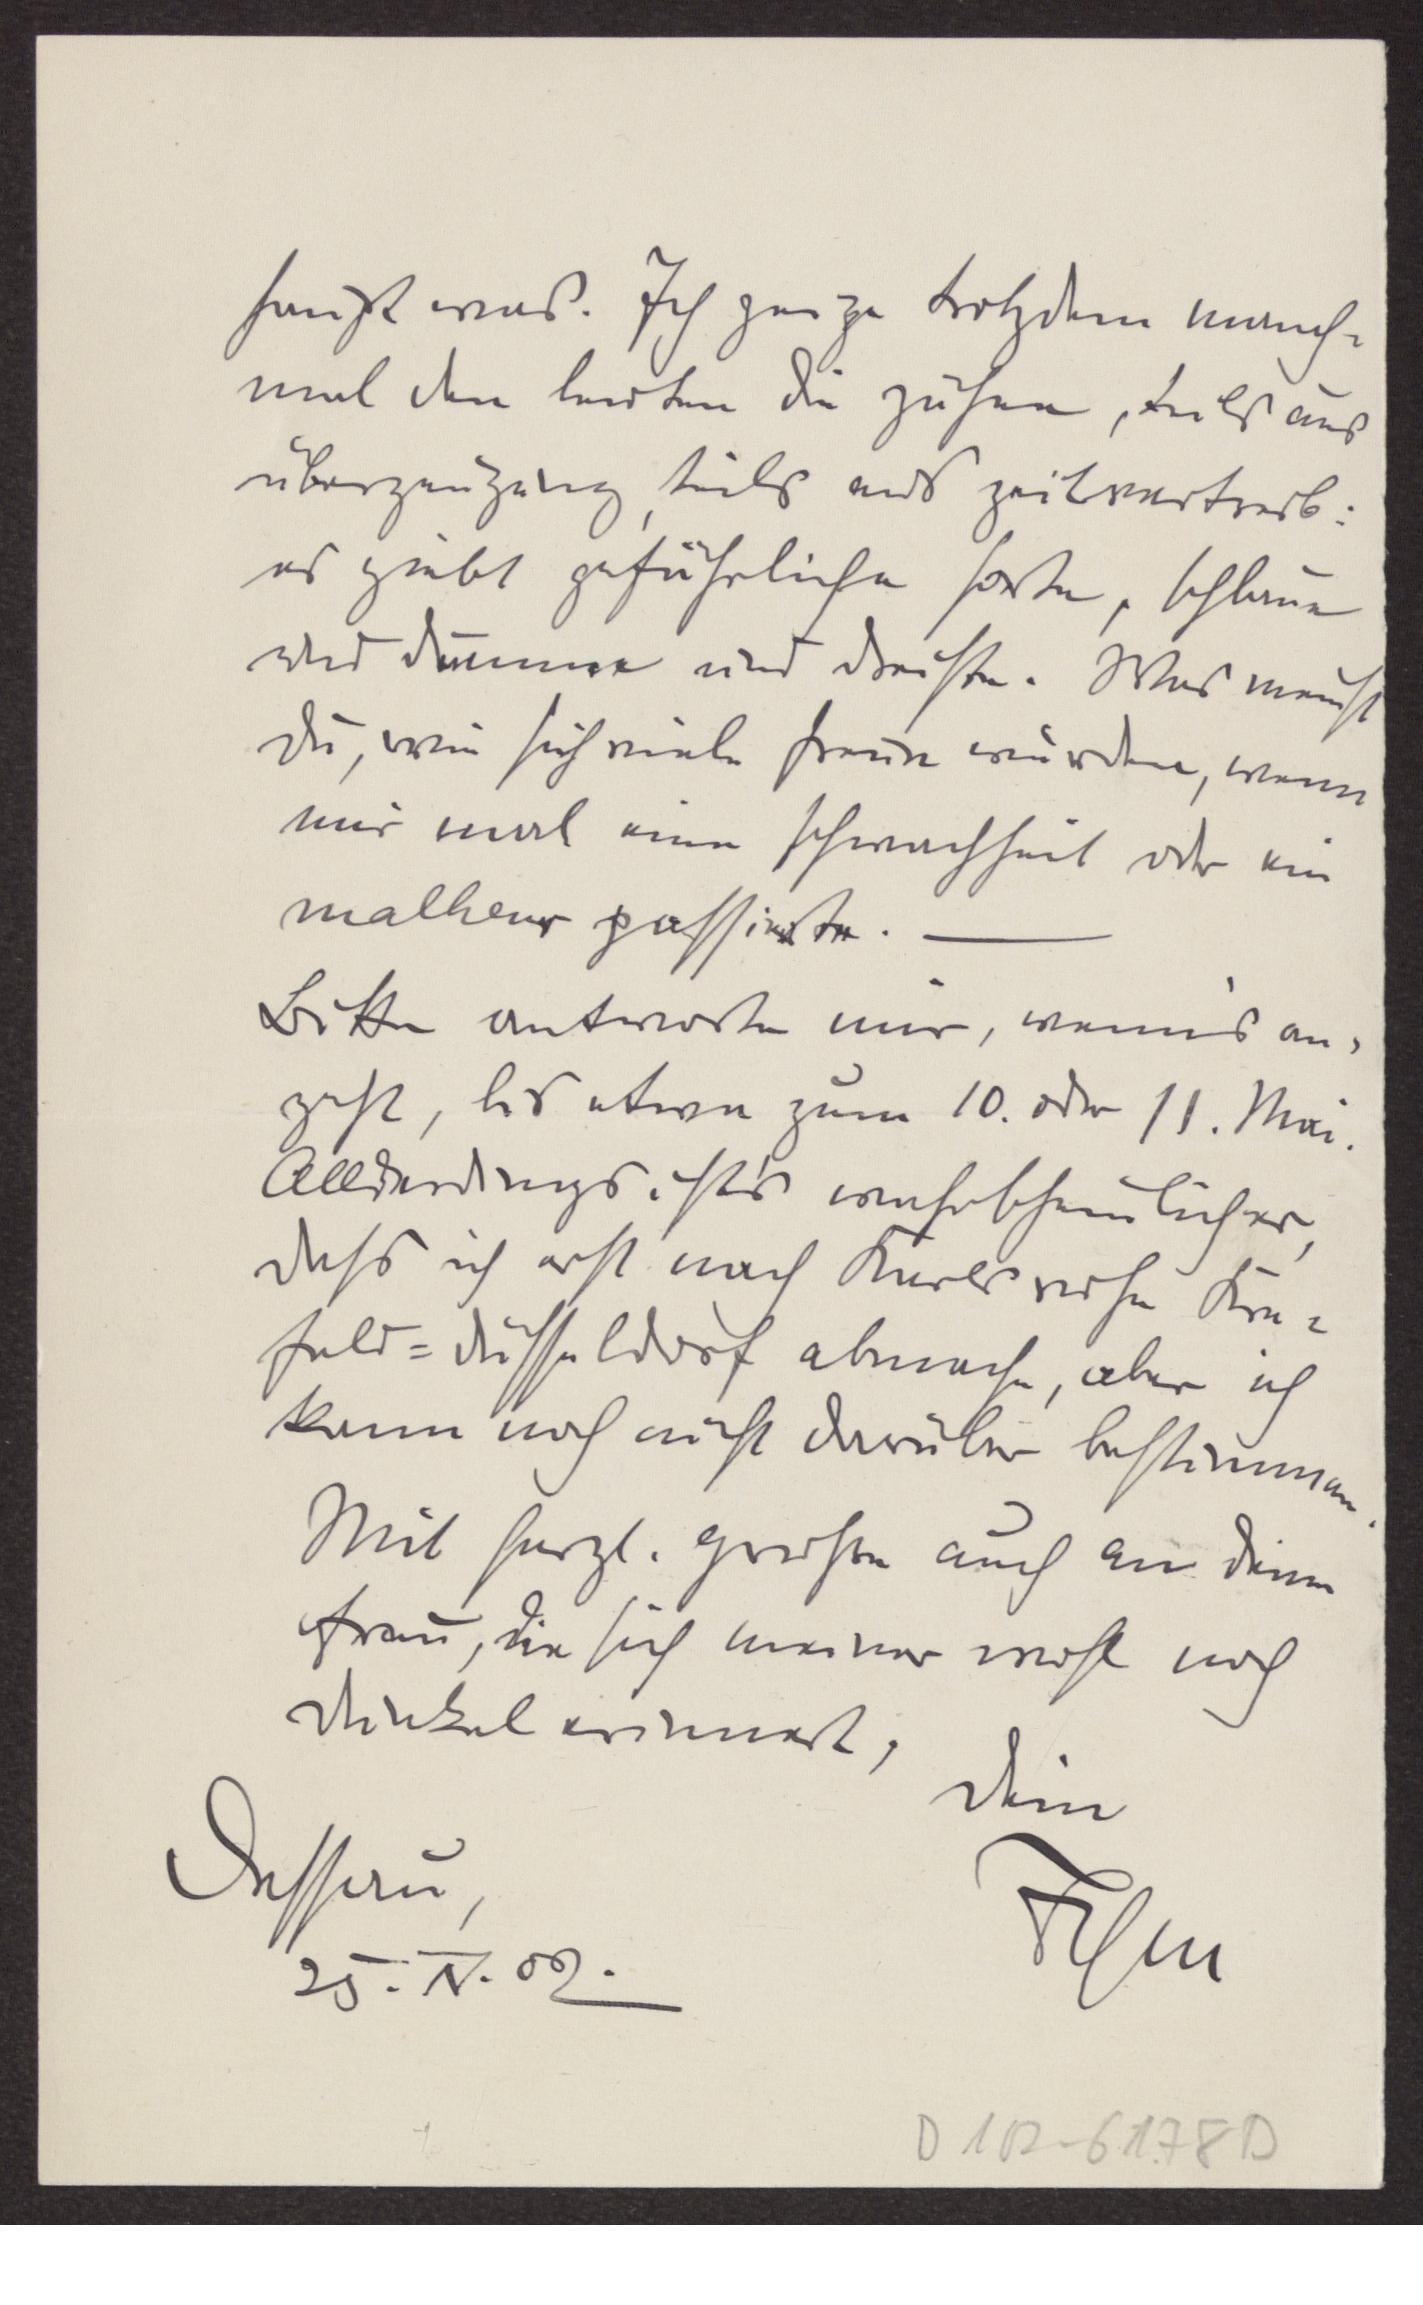 haupt was. Ich zeige trotzdem manch-
mal den leuten die zähne, teils aus
überzeugung, teils aus zeitvertreib:
es giebt gefährliche sorten, schlaue
und dumme und dreiste. Was meinst
du, wie sich viele freun würden, wenn
mir mal eine schwachheit oder ein
malheur passierte. —
Bitte antworte mir, wenn's an-
geht, bis etwa zum 10. oder 11. Mai.
Allerdings ist's wahrscheinlicher,
dass ich erst nach Karlsruhe Kre-
feld=düsseldorf abmache, aber ich
kann noch nicht darüber bestimmen.
Mit herzl. grüssen auch an deine
frau, die sich meiner wohl noch
dunkel erinnert,
dein
Dessau,
25. IV. 02.
D 102-6178D